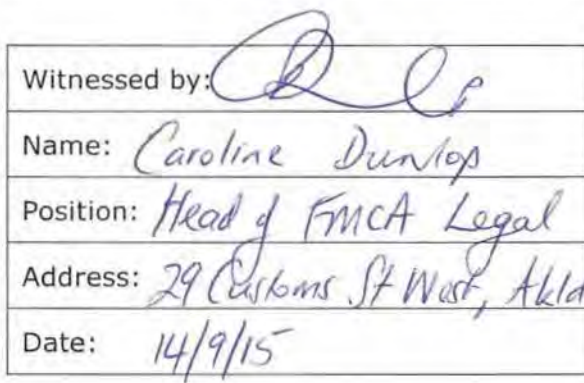 Witnessed by:
Name: Caroline Dunlop
Position: Head of FMCA Legal
Address: 29 Customs St West, Akld
Date: 14/9/15